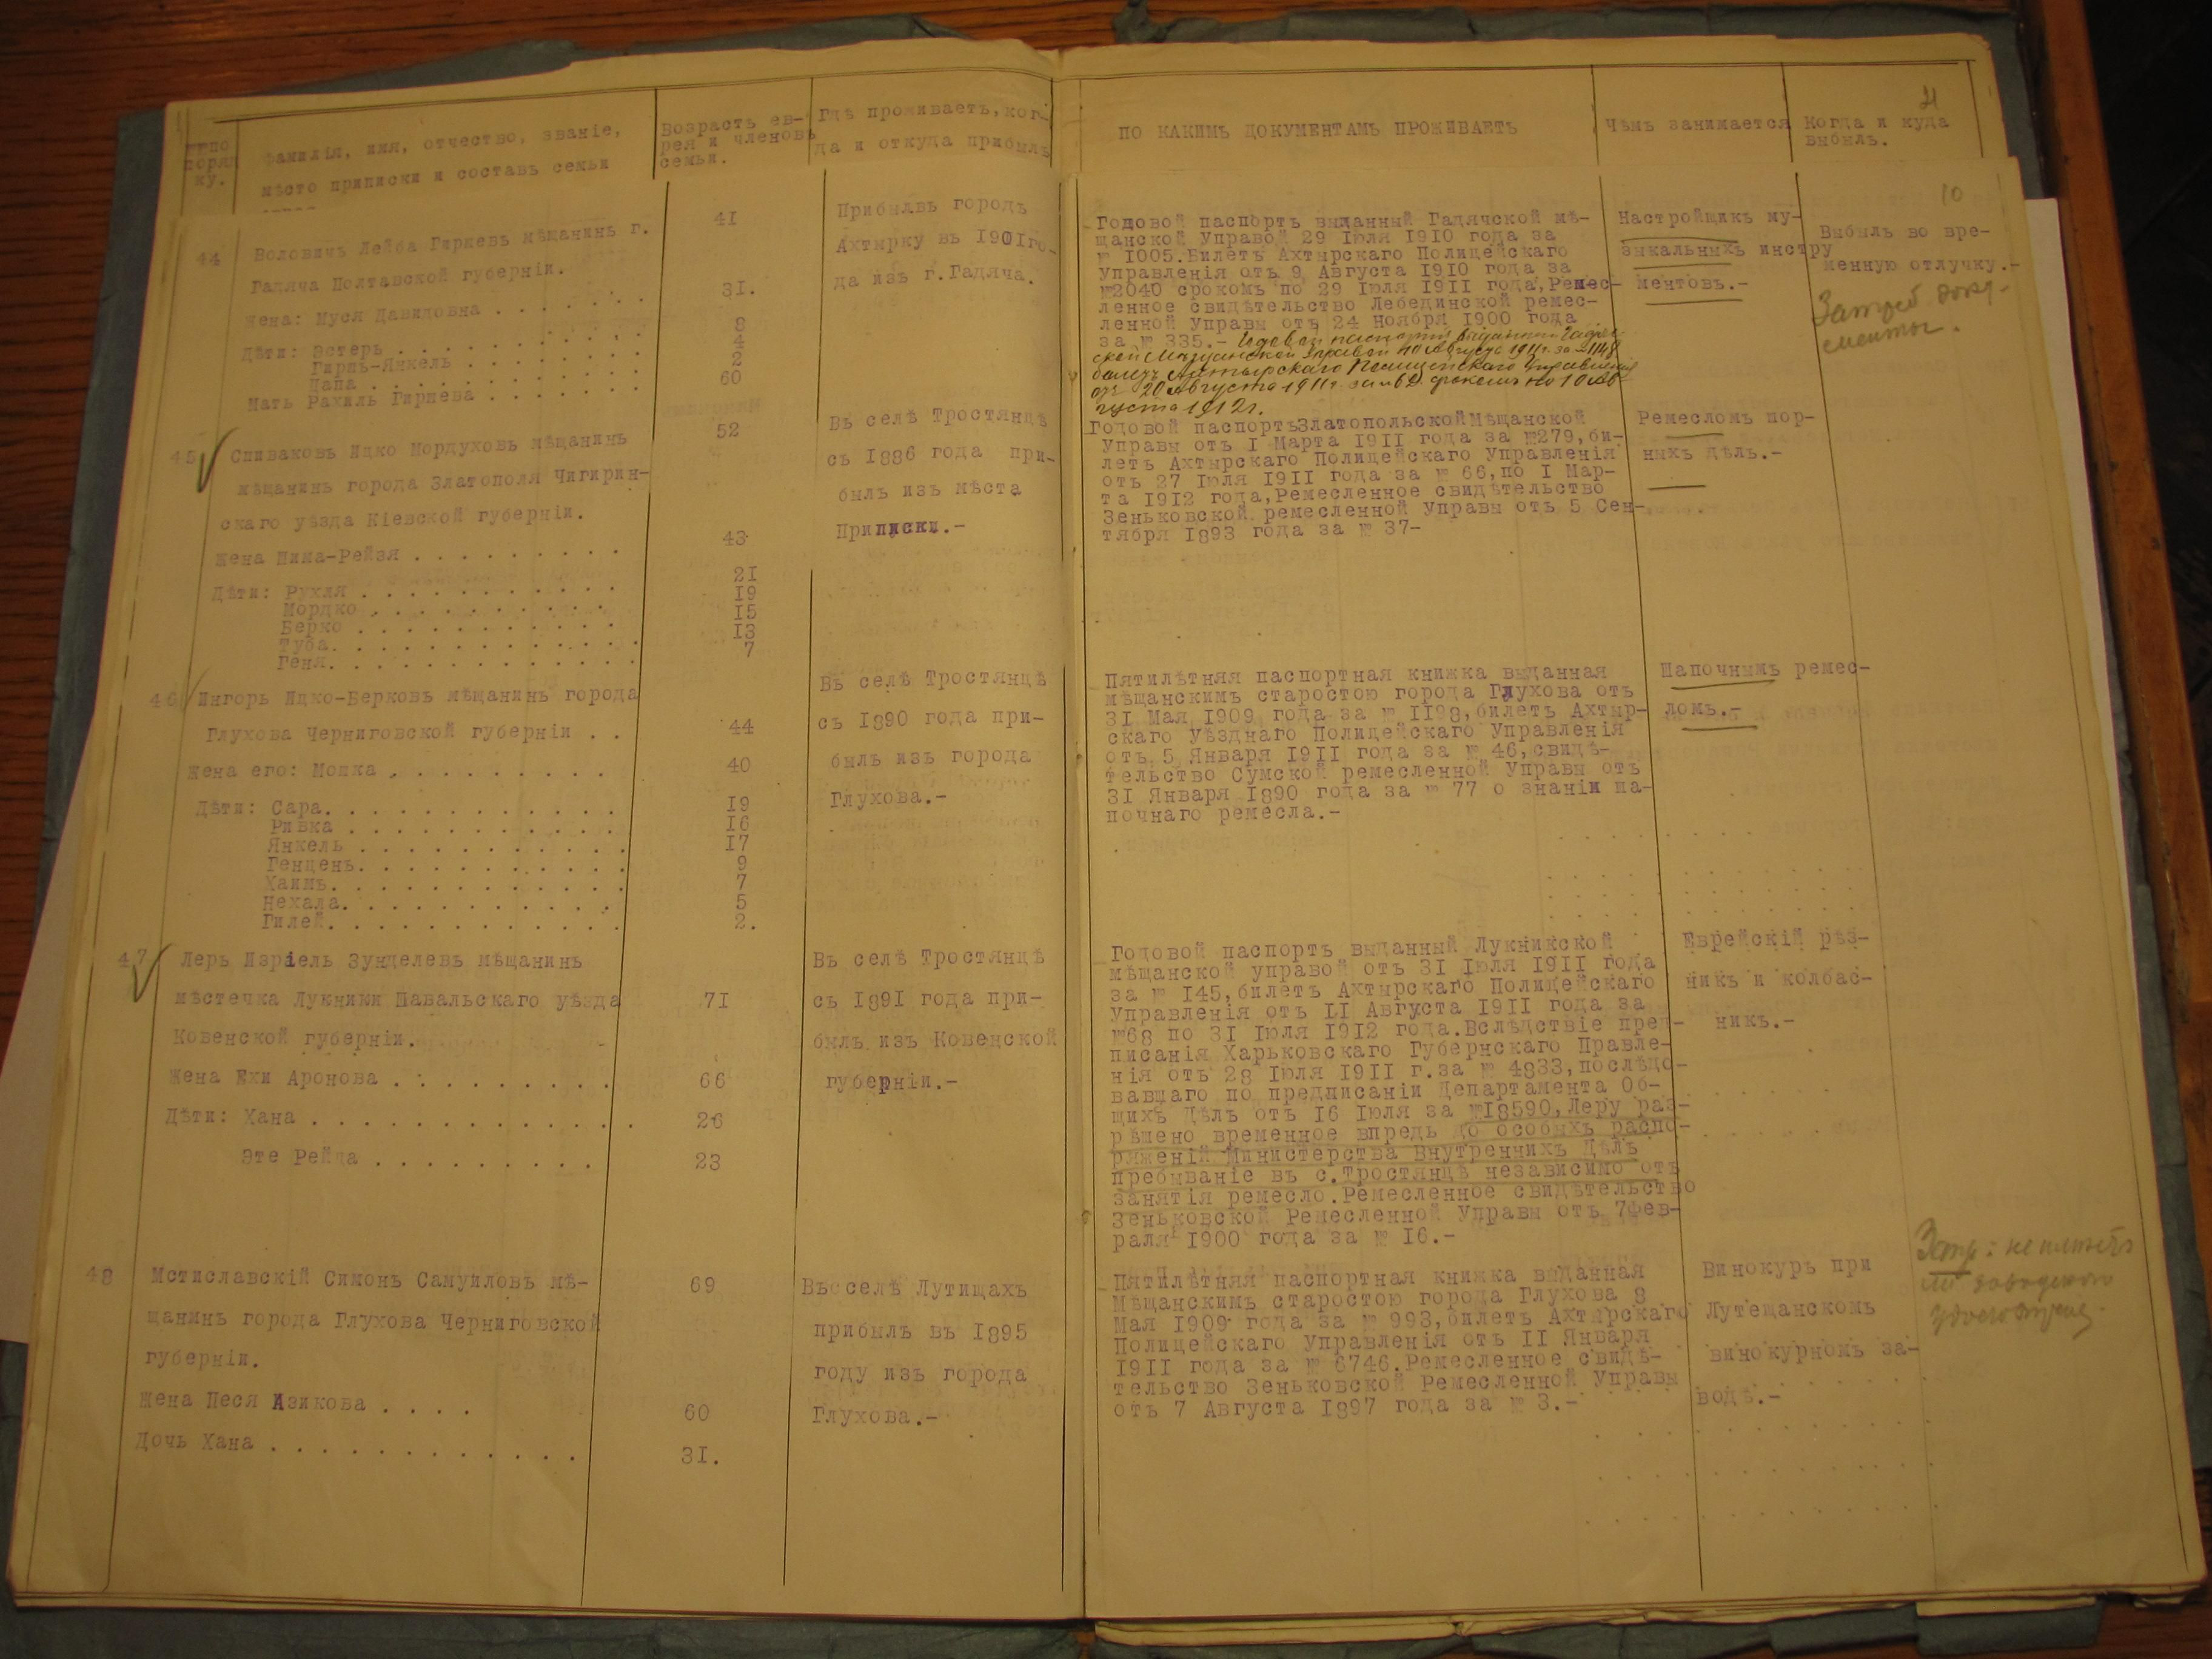 21
№№по
поряд
ку.
Фамилія, имя, отчество, званіе,
мѣсто приписки и составъ семьи
Возрастъ ев-
рея и членовъ
семьи.
Гдѣ проживаетъ, ког-
да и откуда прибылъ
ПО КАКИМЪ ДОКУМЕНТАМЪ ПРОЖИВАЕТЪ
Чѣмъ занимается
Когда и куда
выбылъ.
10
44
Воловикъ Лейба Гиршевъ мѣщанинъ г.
Гадяча Полтавской губерніи.
Жена: Муся Давидовна . . . . . . .
Дѣти: Эстеръ . . . . . . . . . .
Гиршъ-Янкель . . . . . . .
Цапа . . . . . . . . . . .
Мать Рахиль Гиршева . . . . . . .
41
31.
8
4
2
60
Прибылъвъ городъ
Ахтырку въ 1901го-
да изъ г.Гадяча.
Годовой паспортъ выданный Гадячской мѣ-
щанской Управой 29 Іюля 1910 года за
№ 1005.Билетъ Ахтырскаго Полицейскаго
Управленія отъ 9 Августа 1910 года за
№2040 срокомъ по 29 Іюля 1911 года,Ремес-
ленное свидѣтельство Лебединской ремес-
ленной Управы отъ 24 Ноября 1900 года
за № 335.- Годовой паспортъ выданный Гадяч-
ской Мѣщанской Управой 10 Августа 1911 г. за № 1148
билетъ Ахтырскаго Полицейскаго Управленія
отъ 20 Августа 1911 г. за № 62 срокомъ по 10 Ав-
густа 1912 г.
Настройщикъ му-
зыкальныхъ инстру
ментовъ.-
Выбылъ во вре-
менную отлучку.-
Затреб доку-
менты.
45
Спиваковъ Ицко Мордуховъ мѣщанинъ
мѣщанинъ города Златополя Чигирин-
скаго уѣзда Кіевской губерніи.
Жена Шима-Рейзя . . . . . . . . .
Дѣти: Рухля . . . . . . . . . . .
Мордко . . . . . . . . . .
Берко . . . . . . . . . . .
Туба. . . . . . . . . . . . .
Геня. . . . . . . . . . . . .
52
43
21
19
15
13
7
Въ селѣ Тростянцѣ
съ 1886 года при-
былъ изъ мѣста
Приписки.-
Годовой паспортъЗлатопольскойМѣщанской
Управы отъ I Марта 1911 года за №279,би-
летъ Ахтырскаго Полицейскаго Управленія
отъ 27 Іюля 1911 года за № 66,по I Мар-
та 1912 года,Ремесленное свидѣтельство
Зеньковской ремесленной Управы отъ 5 Сен-
тября 1893 года за № 37-
Ремесломъ пор-
ныхъ дѣлъ.-
46
Ингоръ Ицко-Берковъ мѣщанинъ города
Глухова Черниговской губерніи . .
Жена его: Мошка . . . . . . . . .
Дѣти: Сара. . . . . . . . . . . .
Ривка . . . . . . . . . . .
Янкель . . . . . . . . . . .
Генцень. . . . . . . . . . .
Хаимъ. . . . . . . . . . . .
Нехала. . . . . . . . . . .
Гилей. . . . . . . . . . . .
44
40
19
16
17
9
7
5
2.
Въ селѣ Тростянцѣ
съ 1890 года при-
былъ изъ города
Глухова.-
Пятилѣтняя паспортная книжка выданная
мѣщанскимъ старостою города Глухова отъ
31 Мая 1909 года за № 1198,билетъ Ахтыр-
скаго Уѣзднаго Полицейскаго Управленія
отъ 5 Января 1911 года за № 46,свидѣ-
тельство Сумской ремесленной Управы отъ
31 Января 1890 года за № 77 о знаніи ша-
почнаго ремесла.-
Шапочнымъ ремес-
ломъ.-
47
Леръ Израіель Зунделевъ мѣщанинъ
мѣстечка Лукники Шавальскаго уѣзда
Ковенской губерніи.
Жена Ехи Аронова . . . . . . . . .
Дѣти: Хана . . . . . . . . . . . . .
Эте Рейца . . . . . . . . .
71
66
26
23
Въ селѣ Тростянцѣ
съ 1891 года при-
былъ изъ Ковенской
губерніи.-
Годовой паспортъ выданный Лукникской
мѣщанской управой отъ 31 Іюля 1911 года
за № 145,билетъ Ахтырскаго Полицейскаго
Управленія отъ 11 Августа 1911 года за
№68 по 31 Іюля 1912 года.Вслѣдствіе пред-
писанія Харьковскаго Губернскаго Правле-
нія отъ 28 Іюля 1911 г.за № 4833,послѣдо-
вавшаго по предписаніи Департамента Об-
щихъ Дѣлъ отъ 16 Іюля за №18590,Леру раз-
рѣшено временное впредь до особыхъ распо-
ряженій Министерства Внутреннихъ Дѣлъ
пребываніе въ с.Тростянцѣ независимо отъ
занятія ремесло.Ремесленное свидѣтельство
Зеньковской Ремесленной Управы отъ 7фев-
раля 1900 года за № 16.-
Еврейскій рѣз-
никъ и колбас-
никъ.-
48
Мстиславскій Симонъ Самуиловъ мѣ-
щанинъ города Глухова Черниговской
губерніи.
Жена Песя Азикова . . . .
Дочь Хана . . . . . . . . . . . . .
69
60
31.
Въсселѣ Лутищахъ
прибылъ въ 1895
году изъ города
Глухова.-
Пятилѣтняя паспортная книжка выданная
Мѣщанскимъ старостою города Глухова 8
Мая 1909 года за № 993,билетъ Ахтырскаго
Полицейскаго Управленія отъ 11 Января
1911 года за № 6746.Ремесленное свидѣ-
тельство Зеньковской Ремесленной Управы
отъ 7 Августа 1897 года за № 3.-
Винокуръ при
Лутещанскомъ
винокурномъ за-
водѣ.-